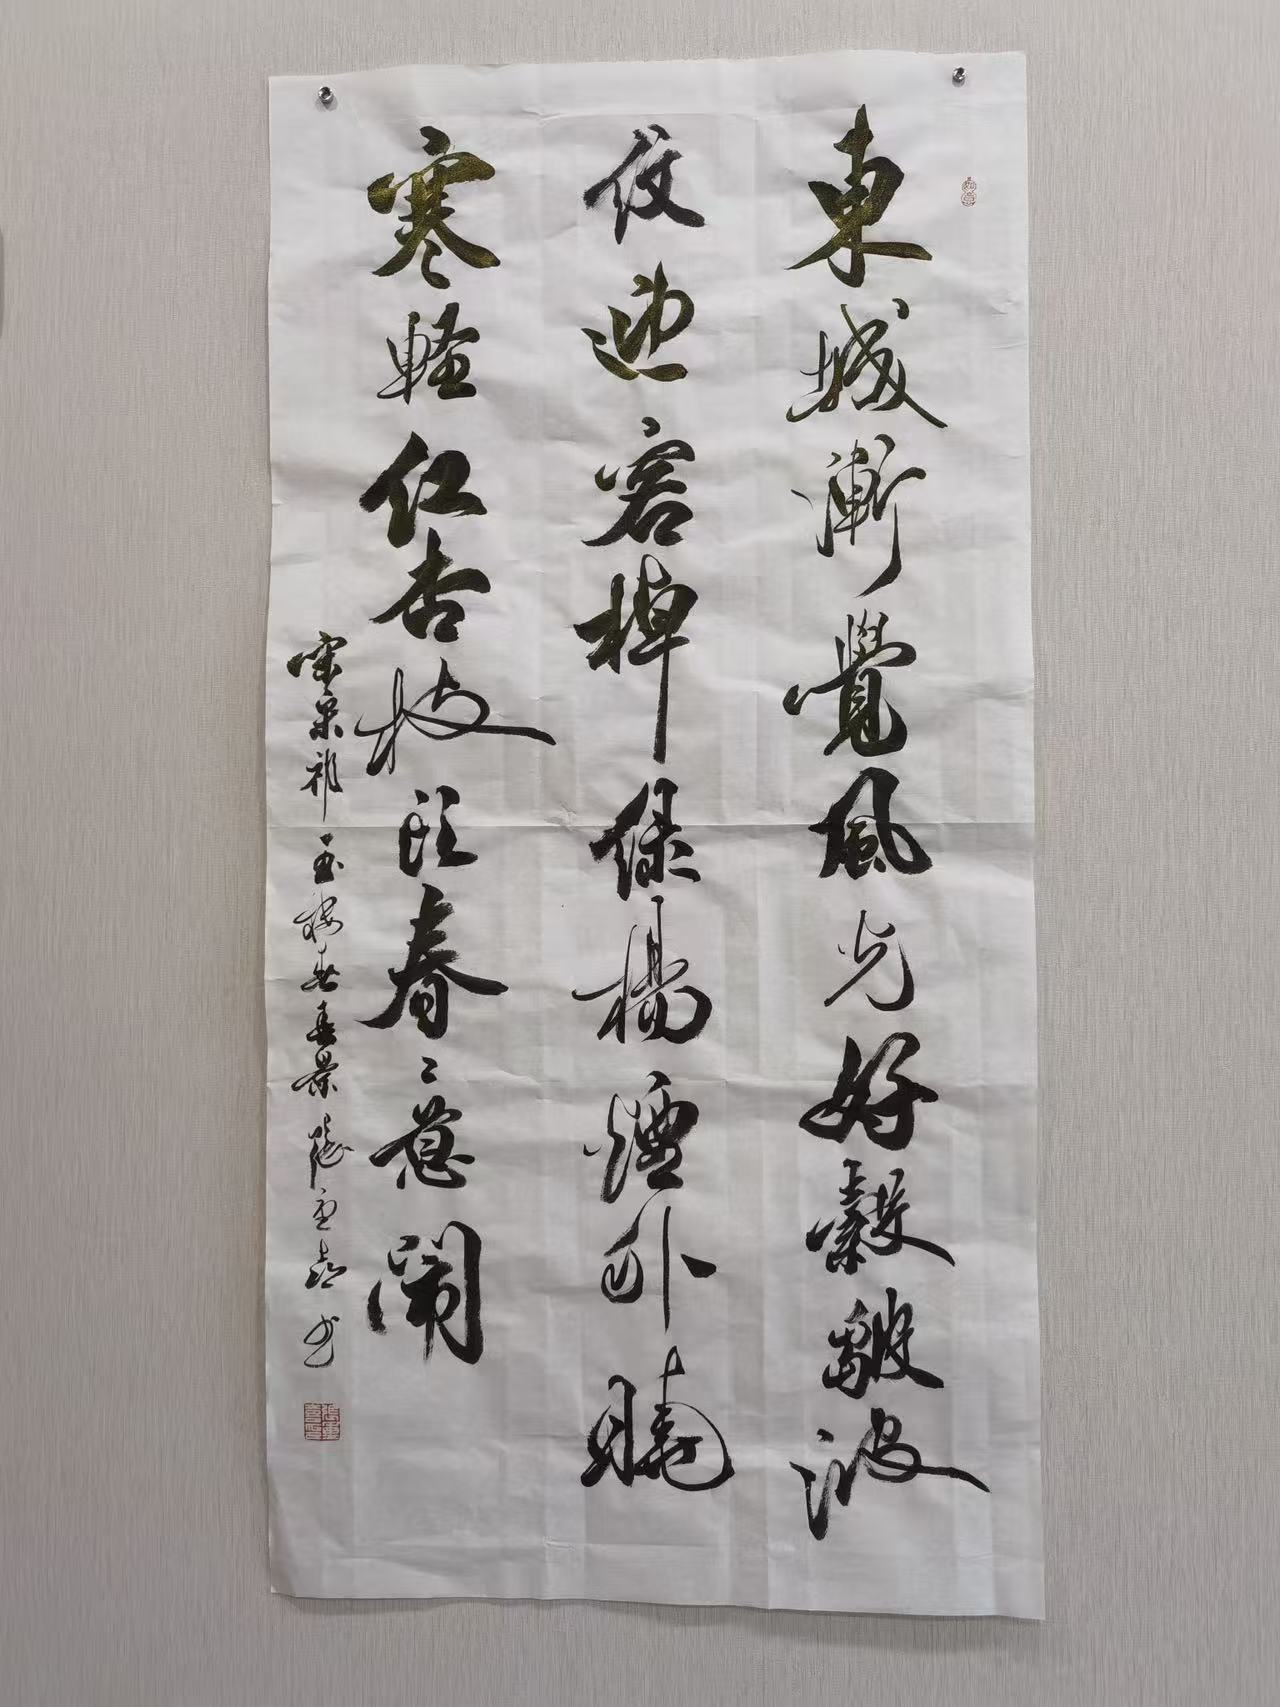 東城漸覺風光好縠皺波
紋迎客棹綠楊煙外曉
寒輕紅杏枝頭春〻意鬧
宋宋祁玉樓春春景 張 喜书